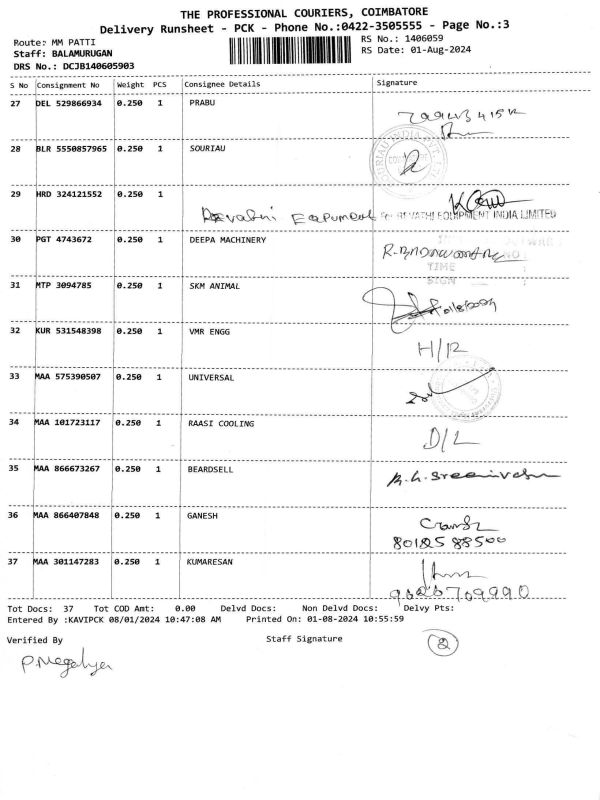 THE PROFESSIONAL COURIERS, COIMBATORE
Delivery Runsheet - PCK - Phone No.:0422-3505555 - Page No.:3
Route: MM PATTI
RS No.: 1406059
Staff: BALAMURUGAN
RS Date: 01-Aug-2024
DRS No.: DCJB140605903
S No Consignment No Weight PCS Consignee Details Signature
27 DEL 529866934 0.250 1 PRABU
28 BLR 5550857965 0.250 1 SOURIAU
29 HRD 324121552 0.250 1
Revathi Equipment For REVATHI EQUIPMENT INDIA LIMITED
30 PGT 4743672 0.250 1 DEEPA MACHINERY
TIME
SIGN
31 MTP 3094785 0.250 1 SKM ANIMAL
32 KUR 531548398 0.250 1 VMR ENGG H/R
33 MAA 575390507 0.250 1 UNIVERSAL
34 MAA 101723117 0.250 1 RAASI COOLING D/L
35 MAA 866673267 0.250 1 BEARDSELL
36 MAA 866407848 0.250 1 GANESH
37 MAA 301147283 0.250 1 KUMARESAN
Tot Docs: 37 Tot COD Amt: 0.00 Delvd Docs: Non Delvd Docs: Delvy Pts:
Entered By :KAVIPCK 08/01/2024 10:47:08 AM Printed On: 01-08-2024 10:55:59
Verified By Staff Signature
2
P.Megalya